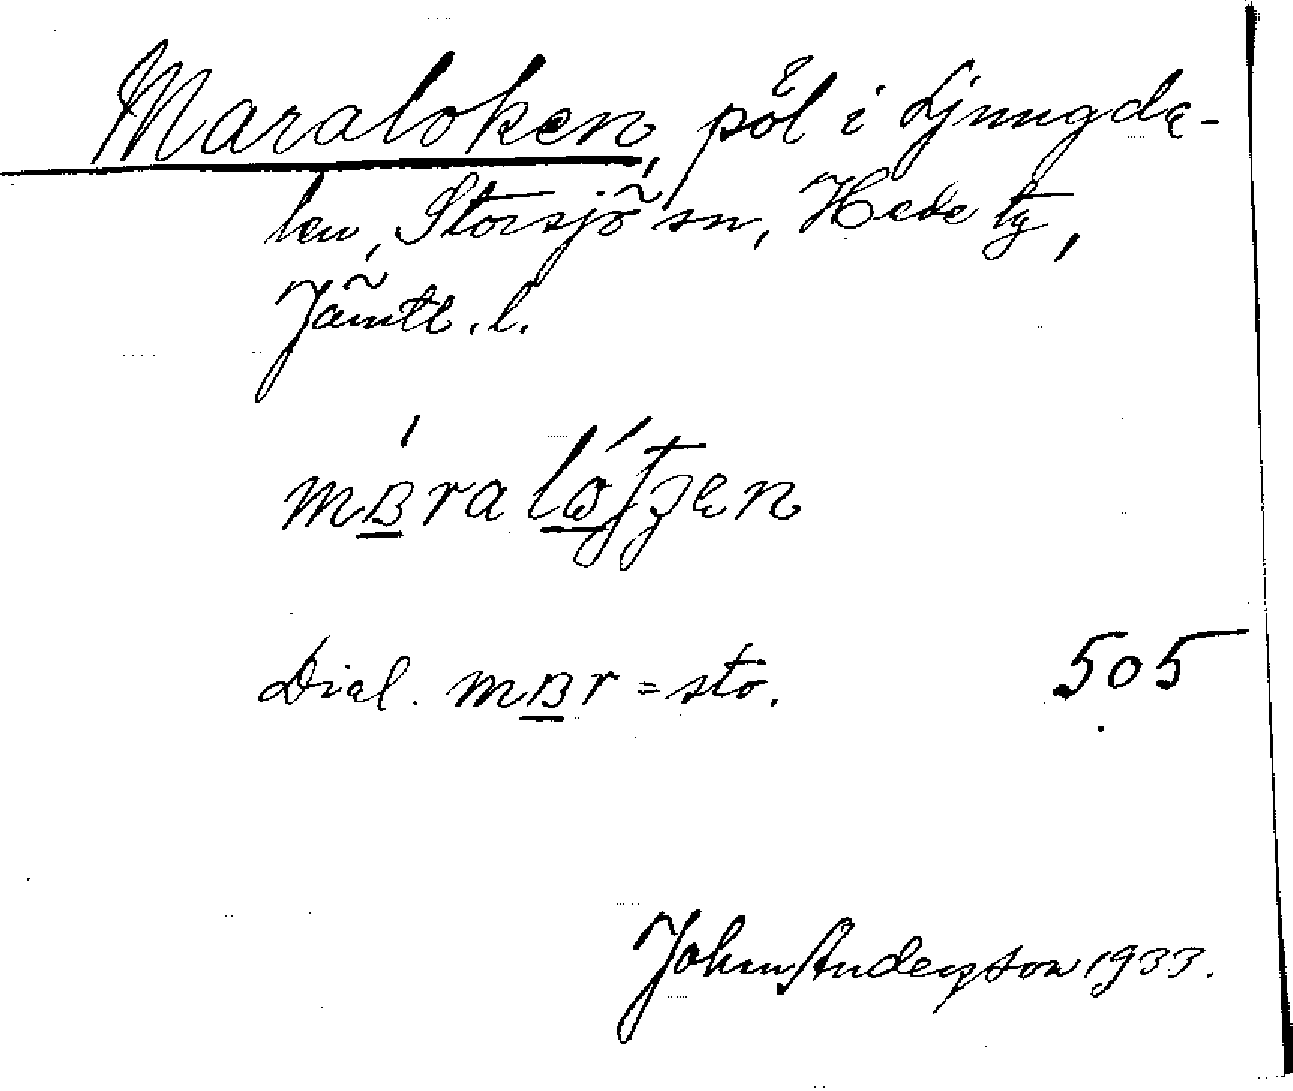 Maraloken, pöl i Ljungda-
len, Storsjö sn, Hede tg,
Jämtl. l.
Dial. mʙr = sto.
505
John Anderson 1933.